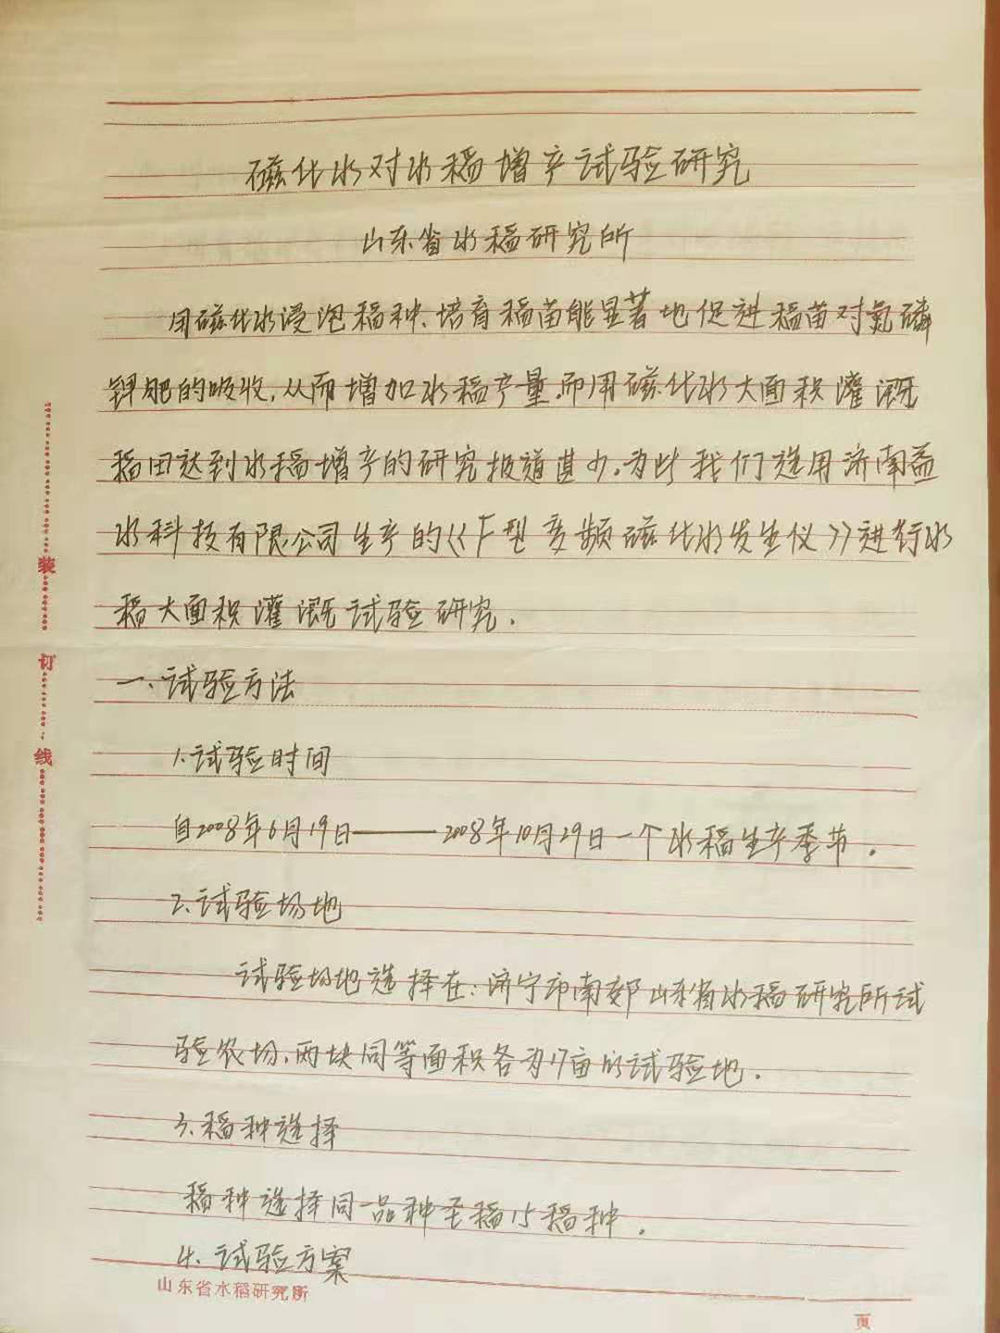 磁化水对水稻增产试验研究
山东省水稻研究所
用磁化水浸泡稻种、培育稻苗能显著地促进稻苗对氮磷
钾肥的吸收,从而增加水稻产量,而用磁化水大面积灌溉
稻田达到水稻增产的研究报道甚少,为此我们选用济南益
水科技有限公司生产的《F型变频磁化水发生仪》进行水
稻大面积灌溉试验研究.
一、试验方法
1.试验时间
自2008年6月19日——2008年10月29日一个水稻生产季节.
2.试验场地
试验场地选择在:济宁市南郊山东省水稻研究所试
验农场,两块同等面积各为17亩的试验地.
3.稻种选择
稻种选择同一品种圣稻15稻种.
4.试验方案
山东省水稻研究所
页
装
订
线